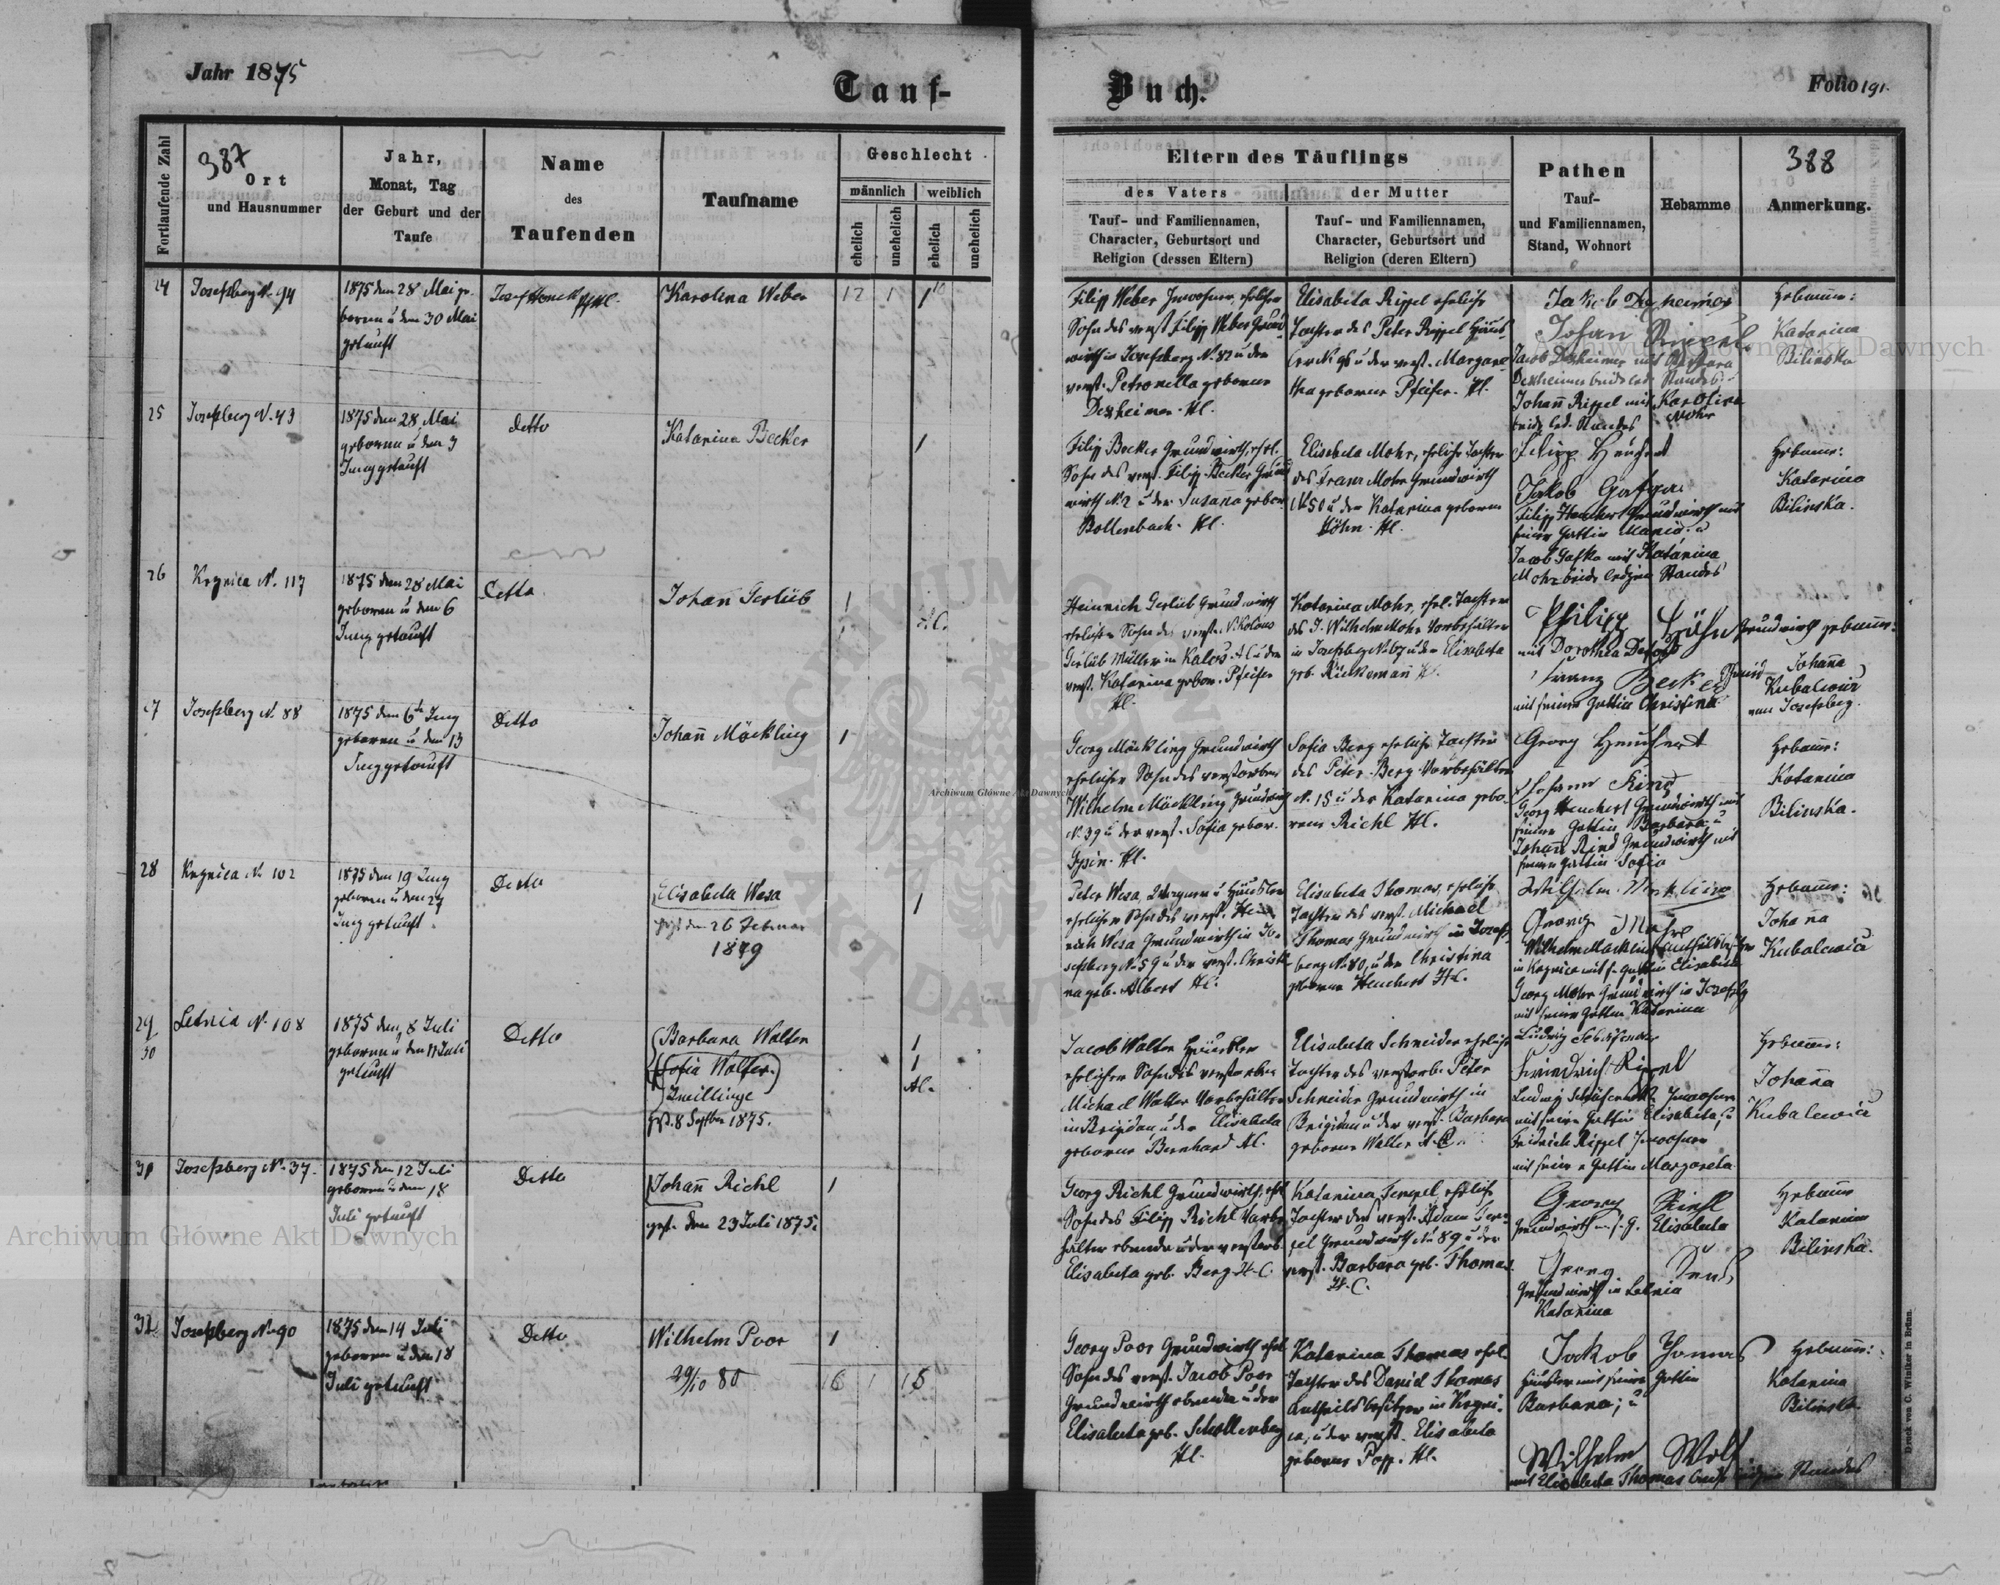 Jahr 1875
Tauf-
Buch.
Folio 191.
Fortlaufende Zahl
387
Ort
und Hausnummer
Jahr,
Monat, Tag
der Geburt und der
Taufe
Name
des
Taufenden
Taufname
Geschlecht
männlich
weiblich
ehelich
unehelich
ehelich
unehelich
Eltern des Täuflings
des Vaters
der Mutter
Tauf- und Familiennamen,
Character, Geburtsort und
Religion (dessen Eltern)
Tauf- und Familiennamen,
Character, Geburtsort und
Religion (deren Eltern)
Pathen
Tauf-
und Familiennamen,
Stand, Wohnort
Hebamme
388
Anmerkung.
24
Josefsberg N. 94
1875 den 28 Mai ge-
boren u den 30 Mai
getauft
Karolina Weber
12 1 1
Filipp Weber Inwohner, ehelicher
Sohn des verst. Filipp Weber Grund
wirth in Josefsberg N. 82 u der
verst. Petronella geborene
Dexheimer. Hl.
Elisabeta Rippel eheliche
Tochter des Peter Rippel Häus
ler N. 98 u der verst. Margare
tha geborene Pfeifer. Hl.
Jakob Dexheimer
Johan Rippel
Jacob Dexheimer mit Barbara
Dexheimer beide led. Standes
Johañ Rippel mit Karolina
beide led. Standes Mohr
Hebamme:
Katarina
Bilinska
25
Josefsberg N. 43
1875 den 28 Mai
geboren u den 3
Juny getauft
Detto
Katarina Becker
1
Filip Becker Grundwirth, ehel.
Sohn des verst. Filipp Becker Grund
wirth N. 2 u der Susana gebor.
Bollenbach. Hl.
Elisabeta Mohr, eheliche Tochter
des Franz Mohr Grundwirth
N. 50 u der Katarina geborene
Höhn. Hl.
Filipp Heuchert
Jakob Gafka
Filipp Heuchert Grundwirth mit
seiner Gattin Maria. u
Jacob Gafka mit Katarina
Mohr beide ledigen Standes
Hebamme:
Katarina
Bilinska.
26
Krynica N. 117
1875 den 28 Mai
geboren u den 6
Juny getauft
Detto
Johañ Gerlüb
1
H.C.
Heinrich Gerlüb Grundwirth
ehelicher Sohn des verst. Nikolaus
Gerlüb Müller in
verst. Katarina gebor. Pfeifer
Hl.
Katarina Mohr, ehel. Tochter
des J. Wilhelm Mohr Vorbehälter
in Josefsberg N. 67 u der Elisabeta
geb. Rückemañ Hl.
Philipp Höhn Grundwirth
mit Dorothea
Franz Becker
mit seiner Gattin Christina
Hebamme:
Johañna
Kubalewicz
von Josefsberg.
27
Josefsberg N. 88
1875 den 6te Juny
geboren u den 13
Juny getauft
Detto
Johañ Möckling
1
Georg Möckling Grundwirth
ehelicher Sohn des verstorben
Wilhelm Möckling Grundwirth
N. 39 u der verst. Sofia gebor.
Hl.
Sofia Berg eheliche Tochter
des Peter Berg Vorbehälter
N. 15 u der Katarina gebo-
rene Richl Hl.
Georg Heuchert
Johann Rind
Georg Heuchert Grundwirth mit
seiner Gattin Barbara u
Johan Rind Grundwirth mit
seiner Gattin Sofia
Hebamme:
Katarina
Bilinska.
28
Krynica N. 102
1875 den 19 Juny
geboren u den 27
Juny getauft.
Detto
Elisabeta Wesa
gest. den 26 Februar
1879
1
Peter Wesa, Wagner u Häusler
ehelicher Sohn des verst. Hein
rich Wesa Grundwirth in Jo-
sefsberg N. 59 u der verst. Christi
na geb. Albert Hl.
Elisabeta Thomas, eheliche
Tochter des verst. Michael
Thomas Grundwirth in Josefs-
berg N. 80, u der Christina
geborene Heuchert H.C.
Wilhelm Möckling
Georg Mohr
Wilhelm Möckling Antheilsbesitzer
in Krynica mit s. Gattin Elisabeta
Georg Mohr Grundwirth in Josefsbg
mit seiner Gattin Katarina
Hebamme:
Johana
Kubalewicz
29
30
Letnia N. 108
1875 den 8 Juli
geboren u den 11 Juli
getauft
Detto
Barbara Walter
Sofia Walter
Zwillinge
gest. 8 Septber 1875.
1
1
Hl.
Jacob Walter Häusler
ehelicher Sohn des verstorben
Michael Walter Vorbehälter
in Brigidau u der Elisabeta
geborene Bernhard Hl.
Elisabeta Schneider eheliche
Tochter des verstorb. Peter
Schneider Grundwirth in
Brigidau u der verst. Barbara
geborene Walter H.C.
Friedrich Rippel
mit seiner Gattin Elisabeta, u
Fridrich Rippel Inwohner
mit seiner Gattin Margareta.
Hebamme:
Johañna
Kubalewicz
31
Josefsberg N. 37.
1875 den 12 Juli
geboren u den 18
Juli getauft
Detto
Johañ Richl
gest. den 23 Juli 1875.
1
Georg Richl Grundwirth, ehel
Sohn des Filipp Richl Vorbe
hälter ebenda u der verstorb.
Elisabeta geb. Berg H.C.
Katarina Tempel, eheliche
Tochter des verst. Adam Tem-
pel Grundwirth N. 89 u der
verst. Barbara geb. Thomas.
H.C.
Georg Riehl
Grundwirth m. s. G. Elisabeta
Georg
Grundwirth in Letnia
Katarina
Hebamme
Katarina
Bilinska.
32
Josefsberg N. 90
1875 den 14 Juli
geboren u den 18
Juli getauft
Detto
Wilhelm Poor
29/10 80
1
16 1 15
Georg Poor Grundwirth ehel
Sohn des verst. Jacob Poor
Grundwirth ebenda u der
Elisabeta geb. Schollenberg
Hl.
Katarina Thomas ehel.
Tochter des Daniel Thomas
Antheilsbesitzer in Kryni-
ca, u der verst. Elisabeta
geborene Popp. Hl.
Jakob Thomas
Häusler mit seiner Gattin
Barbara; u
Wilhelm Wolf
mit Elisabeta Thomas beide ledigen Standes
Hebamme:
Katarina
Bilinska.
Druck von C. Winiker in Brünn.
Archiwum Główne Akt Dawnych
Archiwum Główne Akt Dawnych
Archiwum Główne Akt Dawnych